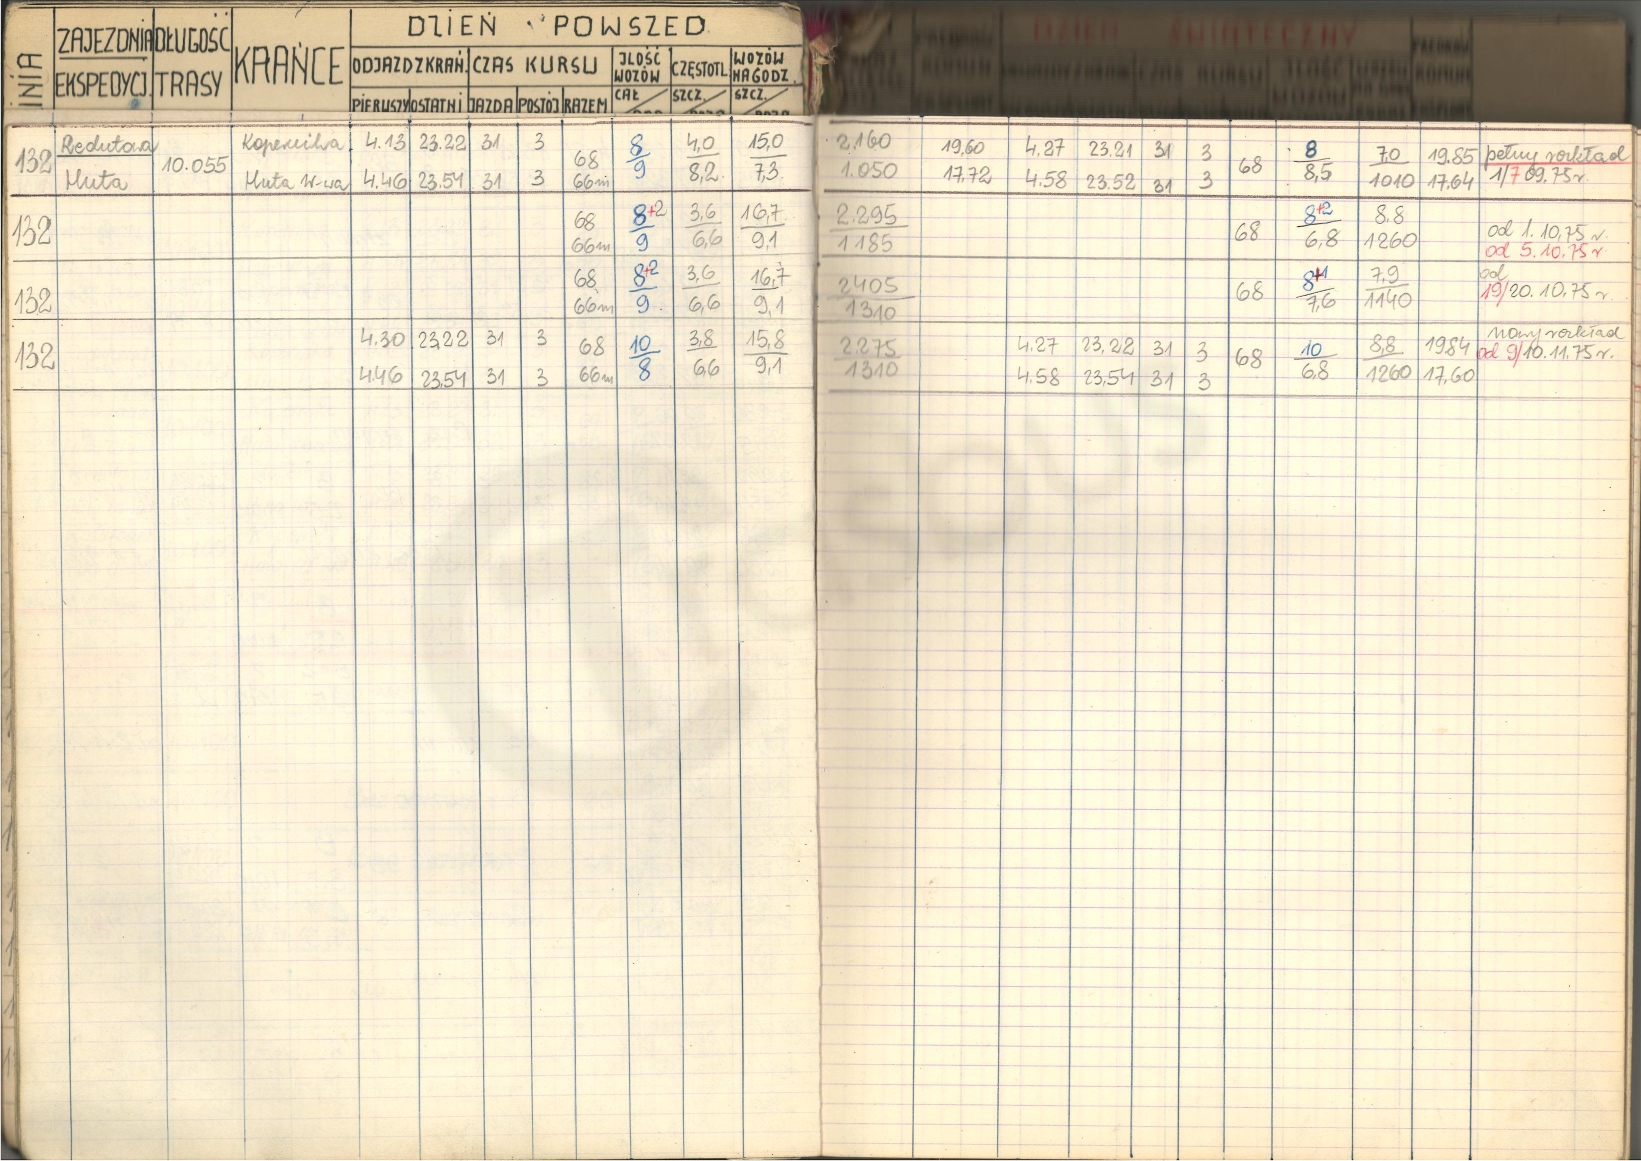 DZIEŃ POWSZED
LINIA ZAJEZDNIA DŁUGOŚĆ KRAŃCE ODJAZD Z KRAŃ. CZAS KURSU JLOŚĆ WOZÓW CZĘSTOTL. WOZÓW NA GODZ.
EKSPEDYCJ. TRASY PIERWSZY OSTATNI JAZDA POSTÓJ RAZEM CAŁ SZCZ. SZCZ.
DZIEŃ ŚWIĄTECZNY
132 Redutowa 10.055 Kopernika 4.13 23.22 31 3 68 8 4,0 15,0 2.160 19,60 4.27 23.21 31 3 68 8 7,0 19,85 pełny rozkład
Huta Huta W-wa 4.46 23.54 31 3 66m 9 8,2 7,3 1.050 17,72 4.58 23.52 31 3 8,5 1010 17,64 1/7 09.75 r.
132 68 8+2 3,6 16,7 2.295 68 8+2 8.8 od 1.10,75 r.
66m 9 6,6 9,1 1185 6,8 1260 od 5.10.75 r
132 68 8+2 3,6 16,7 2405 68 8+1 7,9 od
66m 9 6,6 9,1 1310 7,6 1140 19/20.10.75 r.
132 4.30 23,22 31 3 68 10 3,8 15,8 2.275 4.27 23,22 31 3 68 10 8,8 19,84 nowy rozkład
4.46 23,54 31 3 66m 8 6,6 9,1 1310 4.58 23,54 31 3 6,8 1260 17,60 od 9/10.11.75 r.